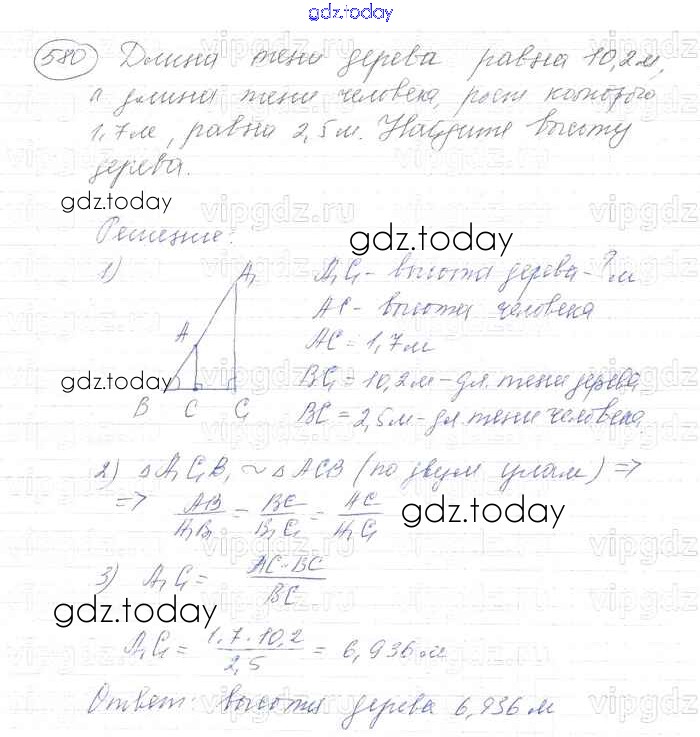 gdz.today
580 Длина тени дерева равна 10,2 м,
а длина тени человека, рост которого
1,7 м, равна 2,5 м. Найдите высоту
дерева.
gdz.today
Решение:
gdz.today
1)
A₁
A
B C C₁
A₁C₁ - высота дерева - ? м
AC - высота человека
AC = 1,7 м
gdz.today
BC₁ = 10,2 м - дл. тени дерева
BC = 2,5 м - дл тени человека.
2) △ A₁C₁B₁ ~ △ ACB (по двум углам) ⇒
⇒ AB/A₁B₁ = BC/B₁C₁ = AC/A₁C₁
gdz.today
3) A₁C₁ = AC·BC/BC
gdz.today
A₁C₁ = 1,7·10,2/2,5 = 6,936 м
Ответ: высота дерева 6,936 м